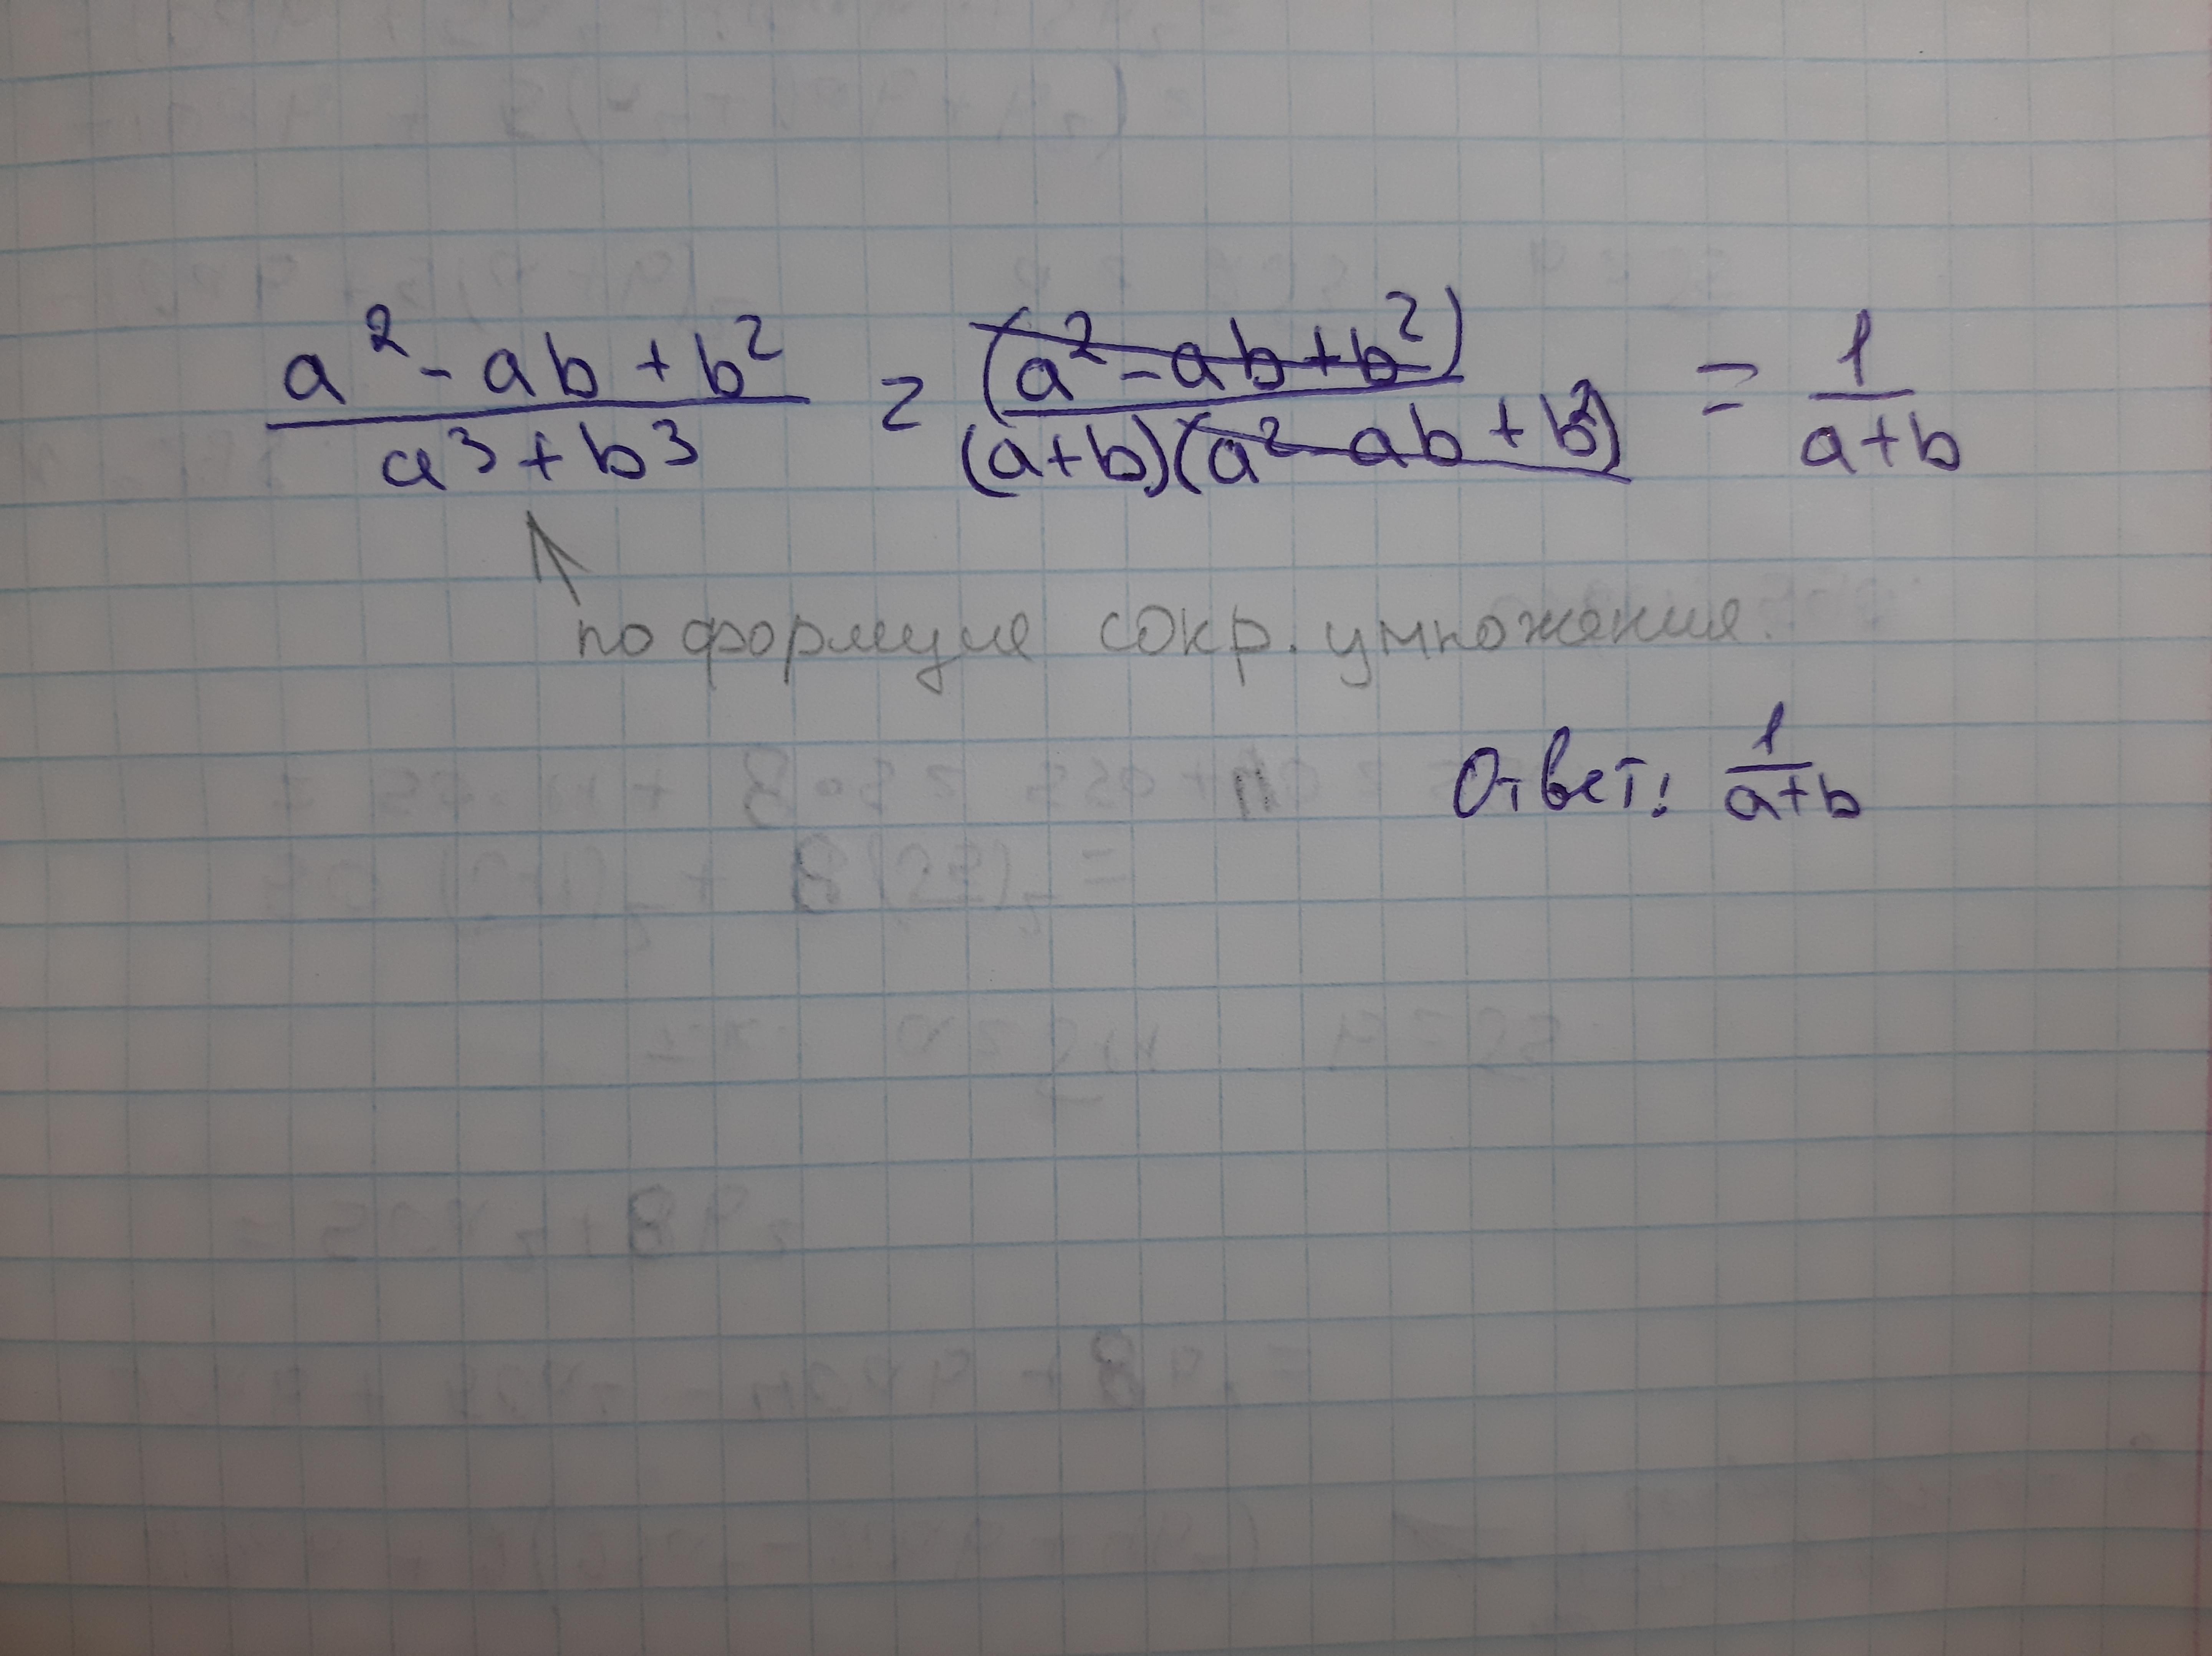 (a² - ab + b²)/(a³ + b³) = (a² - ab + b²)/((a+b)(a² - ab + b²)) = 1/(a+b)
по формуле сокр. умножения.
Ответ: 1/(a+b)